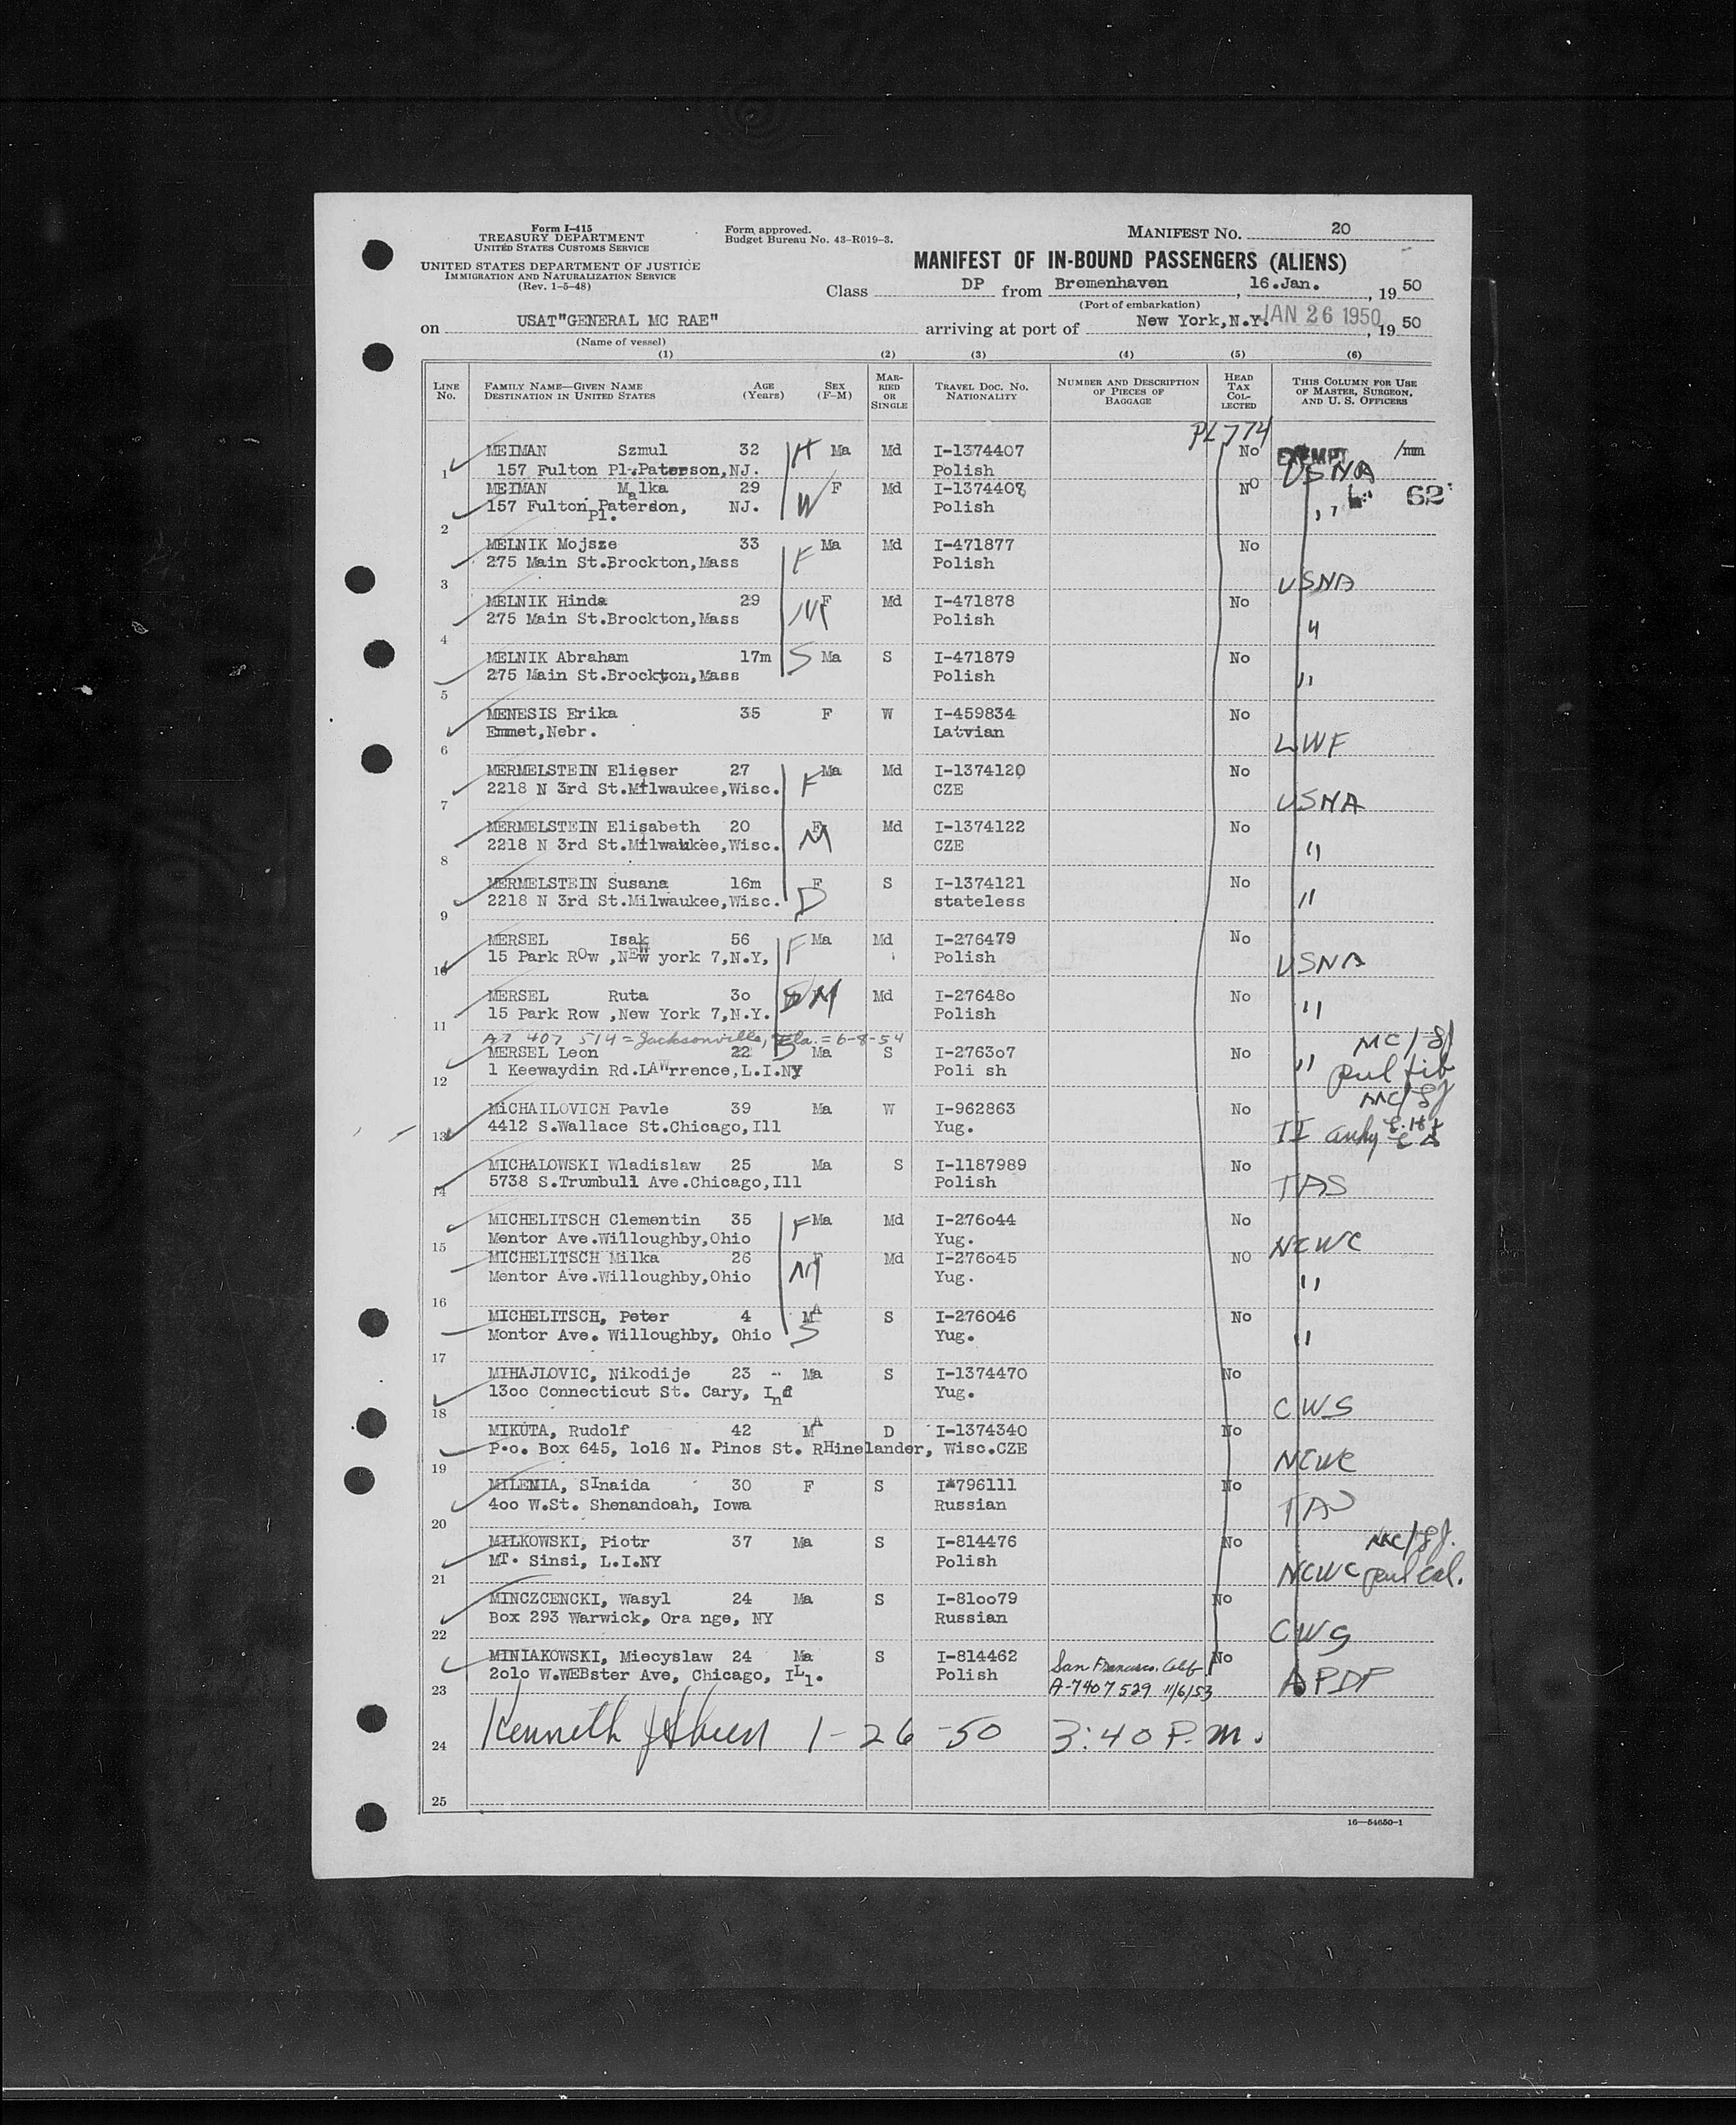 Form I-415
TREASURY DEPARTMENT
UNITED STATES CUSTOMS SERVICE
UNITED STATES DEPARTMENT OF JUSTICE
IMMIGRATION AND NATURALIZATION SERVICE
(Rev. 1-5-48)
Form approved.
Budget Bureau No. 43-R019-3.
MANIFEST NO. 20
MANIFEST OF IN-BOUND PASSENGERS (ALIENS)
Class DP from Bremenhaven, 16.Jan., 19 50
(Port of embarkation)
on USAT"GENERAL MC RAE" arriving at port of New York,N.Y. JAN 26 1950, 19 50
(Name of vessel)
(1) (2) (3) (4) (5) (6)
LINE No. FAMILY NAME—GIVEN NAME DESTINATION IN UNITED STATES AGE (Years) SEX (F-M) MARRIED OR SINGLE TRAVEL DOC. NO. NATIONALITY NUMBER AND DESCRIPTION OF PIECES OF BAGGAGE HEAD TAX COLLECTED THIS COLUMN FOR USE OF MASTER, SURGEON, AND U. S. OFFICERS
PL 774
MEIMAN Szmul 32 H Ma Md I-1374407 No EXEMPT /mm
1 157 Fulton Pl.Paterson,NJ. Polish USNA
MEIMAN Malka 29 W F Md I-1374408 NO 62
2 157 Fulton Pl. Paterson, NJ. Polish "
MELNIK Mojsze 33 F Ma Md I-471877 No
3 275 Main St.Brockton,Mass Polish USNA
MELNIK Hinda 29 M F Md I-471878 No
4 275 Main St.Brockton,Mass Polish "
MELNIK Abraham 17m S Ma S I-471879 No
5 275 Main St.Brockton,Mass Polish "
MENESIS Erika 35 F W I-459834 No
6 Emmet,Nebr. Latvian LWF
MERMELSTEIN Elieser 27 F Ma Md I-1374120 No
7 2218 N 3rd St.Milwaukee,Wisc. CZE USNA
MERMELSTEIN Elisabeth 20 M F Md I-1374122 No
8 2218 N 3rd St.Milwaukee,Wisc. CZE "
MERMELSTEIN Susana 16m F S I-1374121 No
9 2218 N 3rd St.Milwaukee,Wisc. D stateless "
MERSEL Isak 56 F Ma Md I-276479 No
10 15 Park ROw ,NEW york 7,N.Y, Polish USNA
MERSEL Ruta 3o M Md I-27648o No
11 15 Park Row ,New York 7,N.Y. Polish "
A7 407 514 = Jacksonville, Fla. = 6-8-54
MERSEL Leon 22 S Ma S I-2763o7 No " MC/
12 1 Keewaydin Rd.LAWrrence,L.I.NY Poli sh pul fib
MiCHAILOVICH Pavle 39 Ma W I-962863 No MC/
13 4412 S.Wallace St.Chicago,Ill Yug. TI
MICHALOWSKI Wladislaw 25 Ma S I-1187989 No
14 5738 S.Trumbull Ave.Chicago,Ill Polish TAS
MICHELITSCH Clementin 35 F Ma Md I-276o44 No
15 Mentor Ave.Willoughby,Ohio Yug. NCWC
MICHELITSCH Milka 26 M F Md I-276o45 NO
16 Mentor Ave.Willoughby,Ohio Yug. "
MICHELITSCH, Peter 4 MA S I-276046 No
17 Montor Ave. Willoughby, Ohio S Yug. "
MIHAJLOVIC, Nikodije 23 Ma S I-1374470 No
18 13oo Connecticut St. Cary, Ind Yug. CWS
MIKUTA, Rudolf 42 MA D I-1374340 No
19 P.o. Box 645, 1o16 N. Pinos St. RHinelander, Wisc.CZE NCWC
MILENIA, SInaida 30 F S I*796111 No
20 4oo W.St. Shenandoah, Iowa Russian TAS
MILKOWSKI, Piotr 37 Ma S I-814476 No MC/
21 MT. Sinsi, L.I.NY Polish NCWC pul cal.
MINCZCENCKI, Wasyl 24 Ma S I-81oo79 No
22 Box 293 Warwick, Ora nge, NY Russian CWS
MINIAKOWSKI, Miecyslaw 24 Ma S I-814462 San Francisco. Calif No
23 2o1o W.WEBster Ave, Chicago, ILl. Polish A-7407529 11/6/53 APDP
24 Kenneth 1-26-50 3:40 P.M.
25
16—54650-1